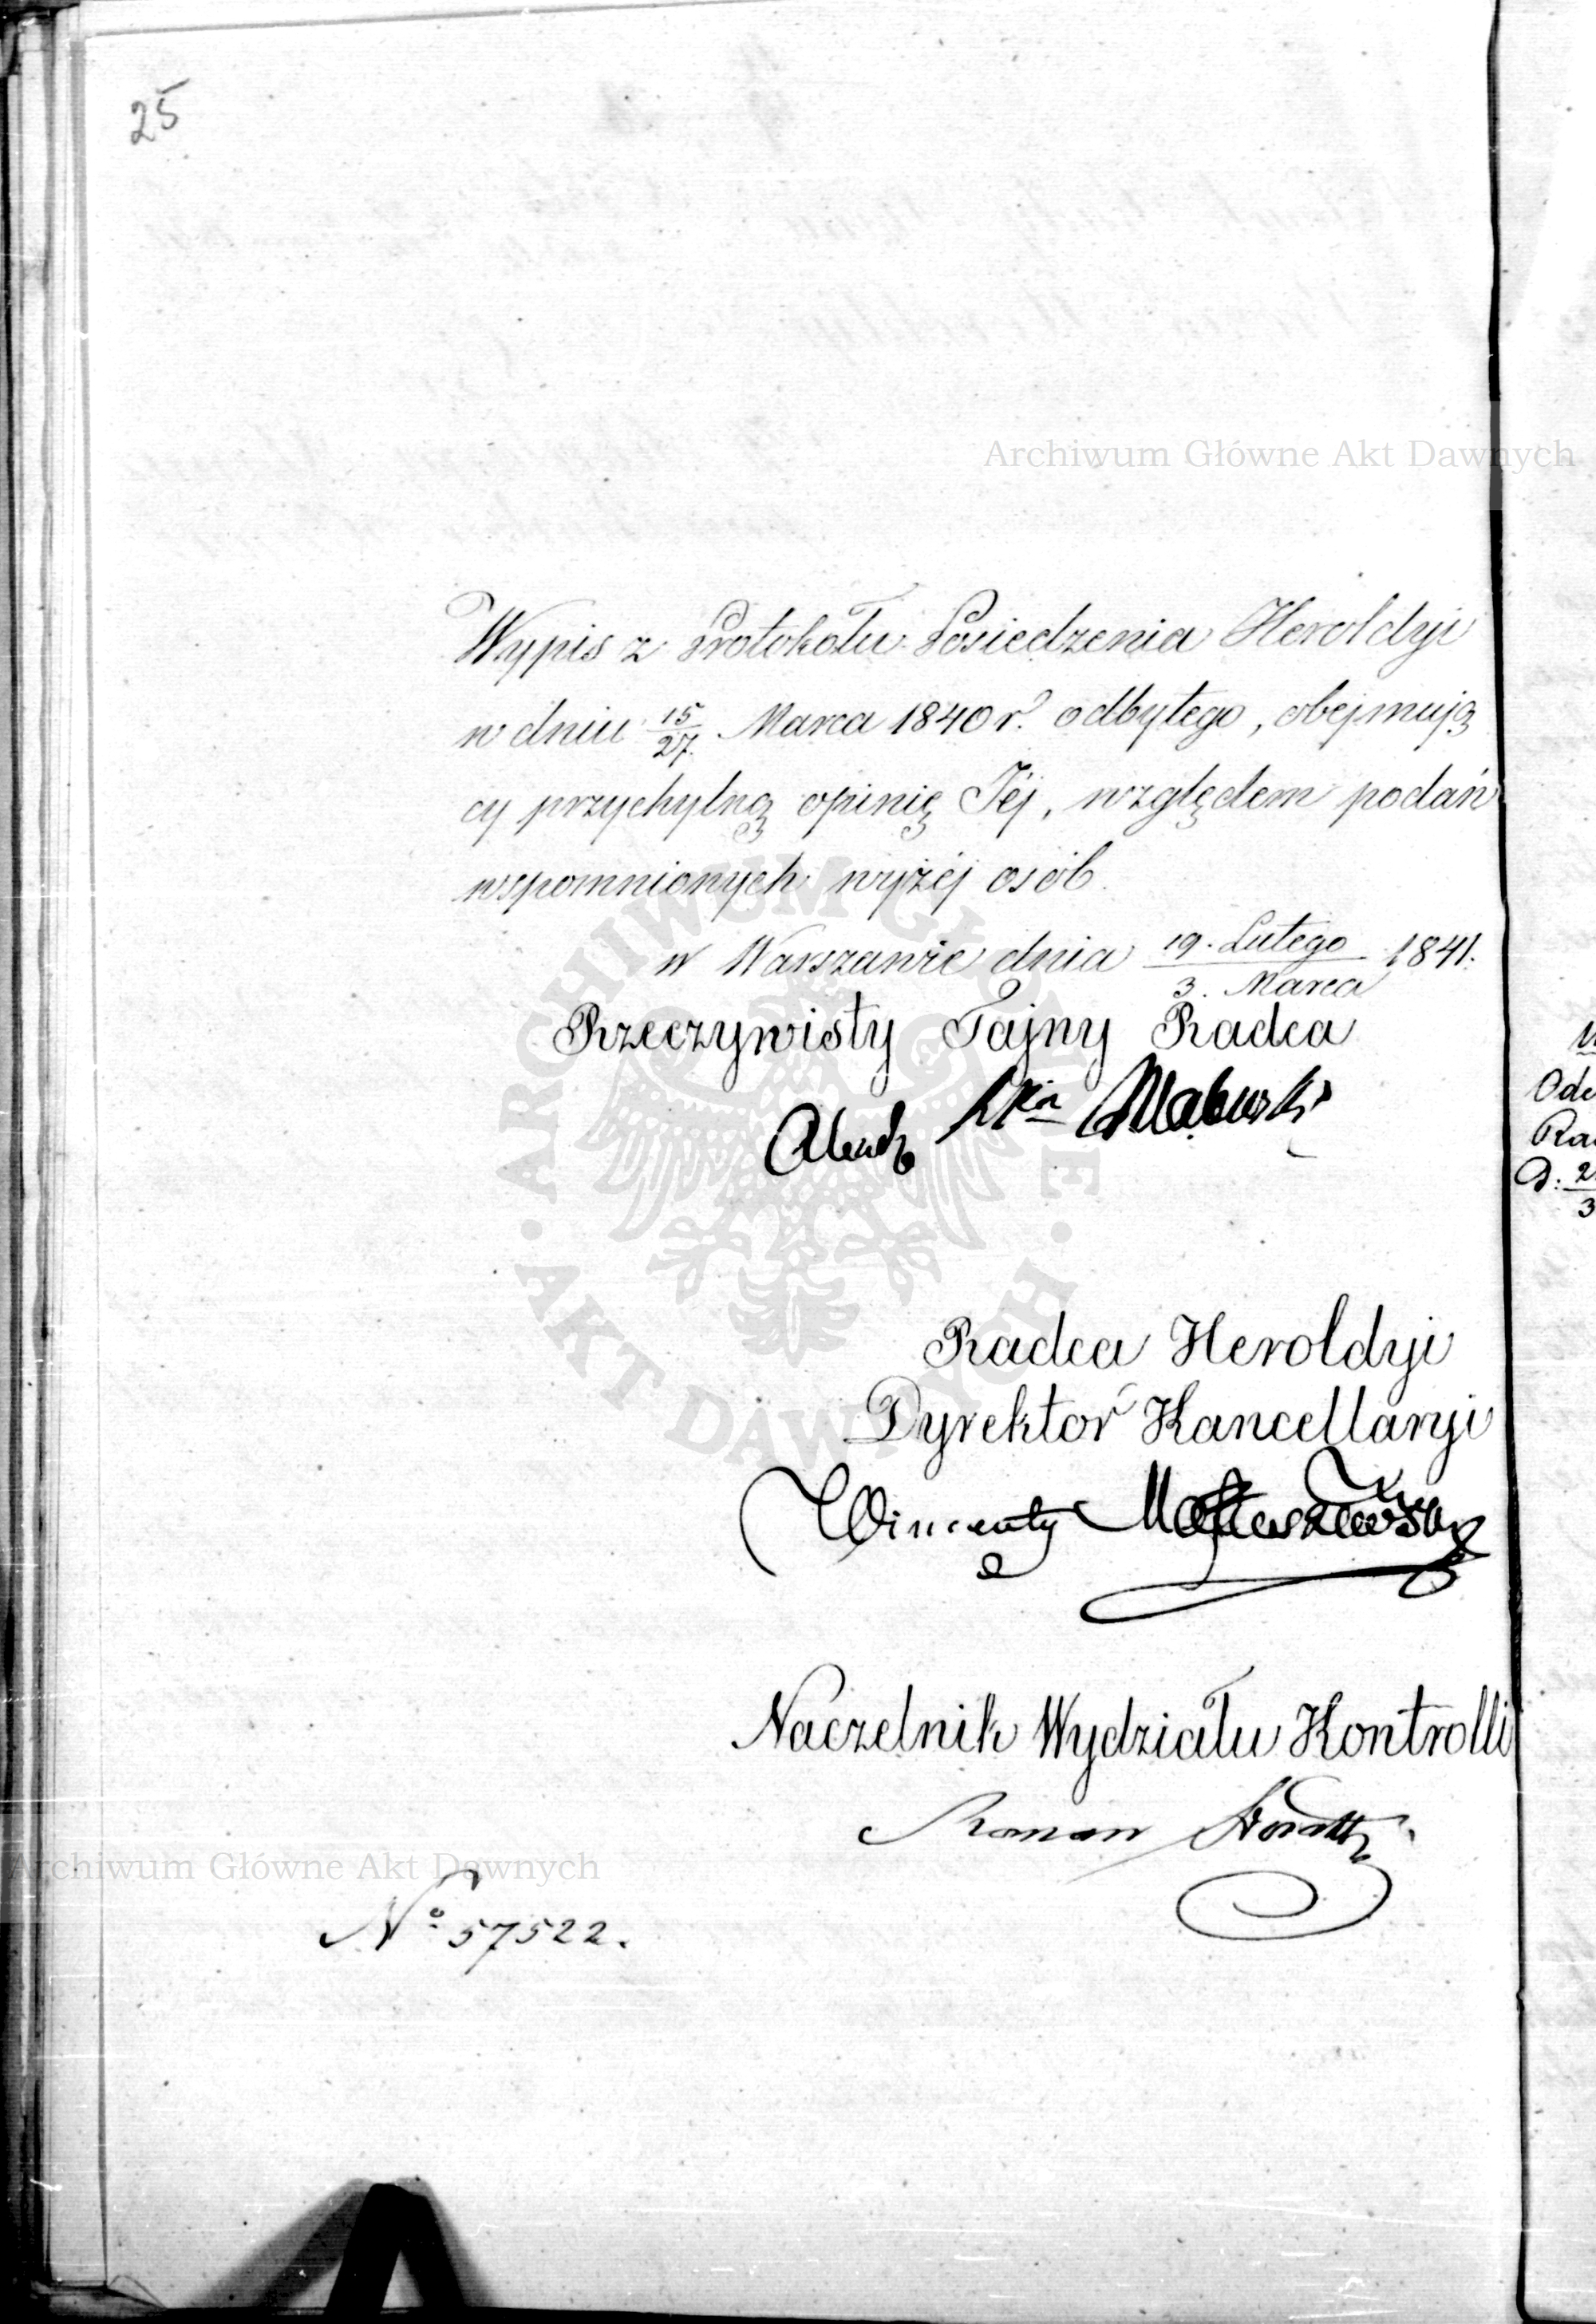 25
Archiwum Główne Akt Dawnych
Wypis z Protokołu Posiedzenia Heroldyi
w dniu 15/27. Marca 1840 r. odbytego, obejmują
cy przychylną opinię Jéj, względem podań
wspomnionych wyżéj osób.
w Warszawie dnia 19. Lutego / 3. Marca 1841.
Rzeczywisty Tajny Radca
Radca Heroldyi
Dyrektor Kancellaryi
Wincenty
Naczelnik Wydziału Kontrolli
Roman
Archiwum Główne Akt Dawnych
No 57522.
ARCHIWUM GŁÓWNE · AKT DAWNYCH ·
Ode